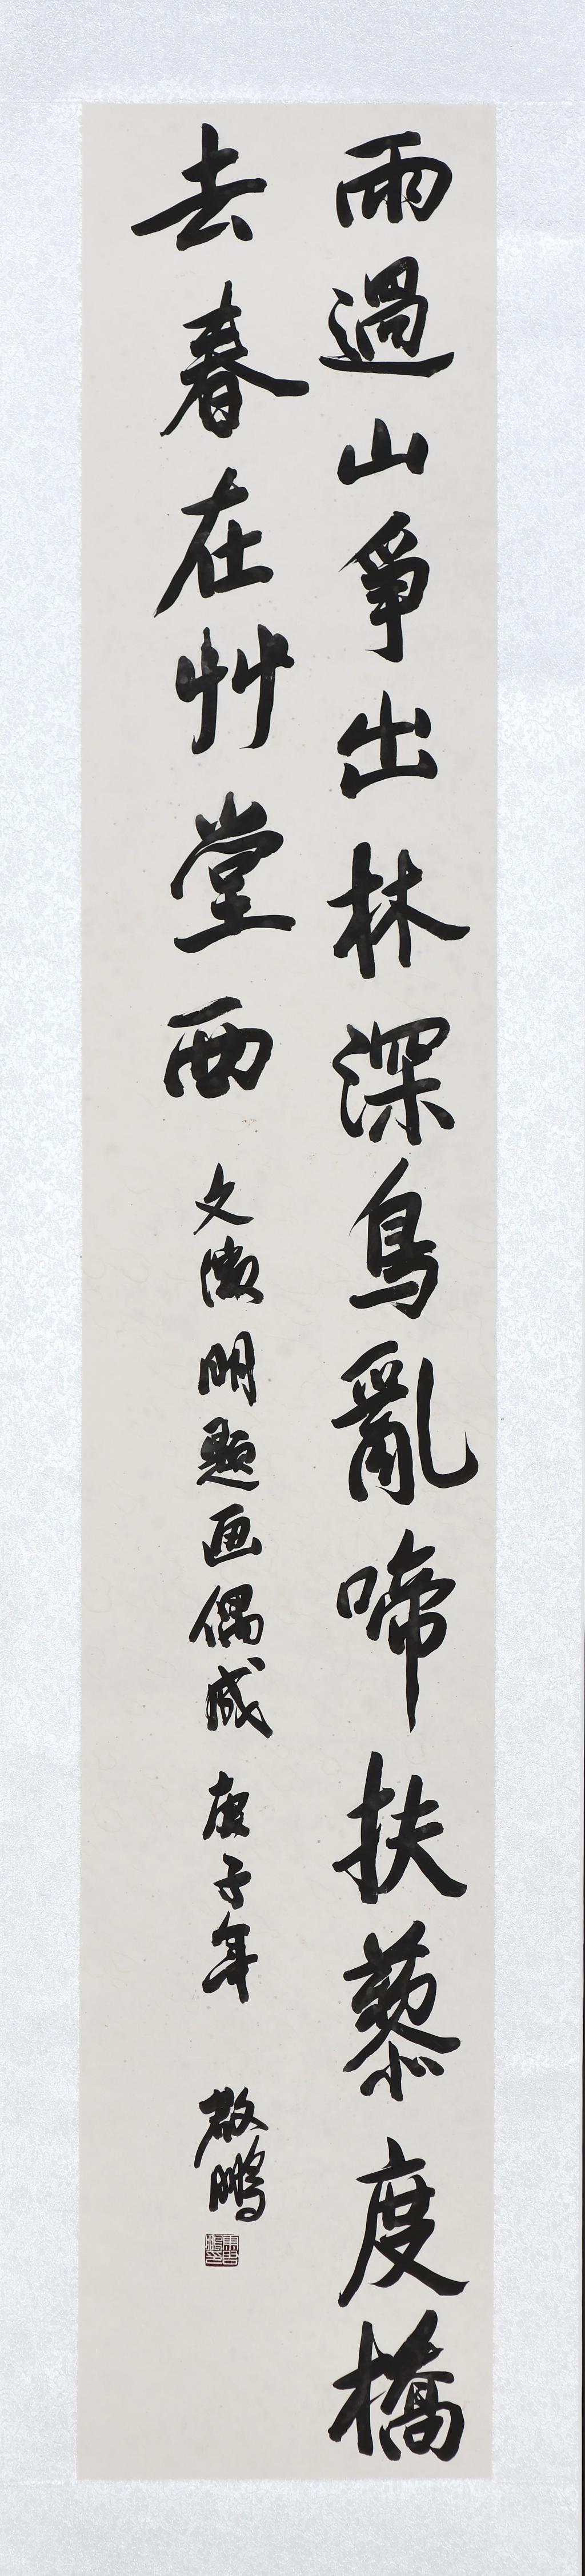 雨過山爭出林深鳥亂啼扶藜度橋
去春在艸堂西 文徵明題画偶成 庚子年 敬鵬